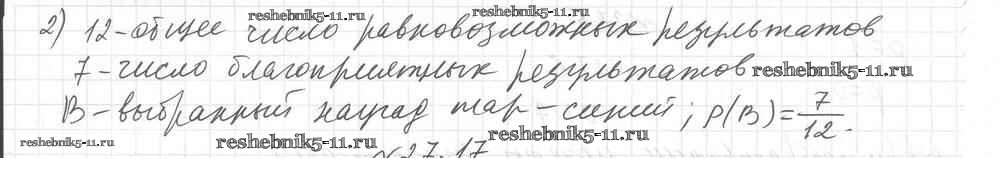 reshebnik5-11.ru
reshebnik5-11.ru
2) 12 - общее число равновозможных результатов
7 - число благоприятных результатов reshebnik5-11.ru
B - выбранный наугад шар - синий; P(B) = 7/12.
reshebnik5-11.ru
reshebnik5-11.ru
reshebnik5-11.ru
№27.17